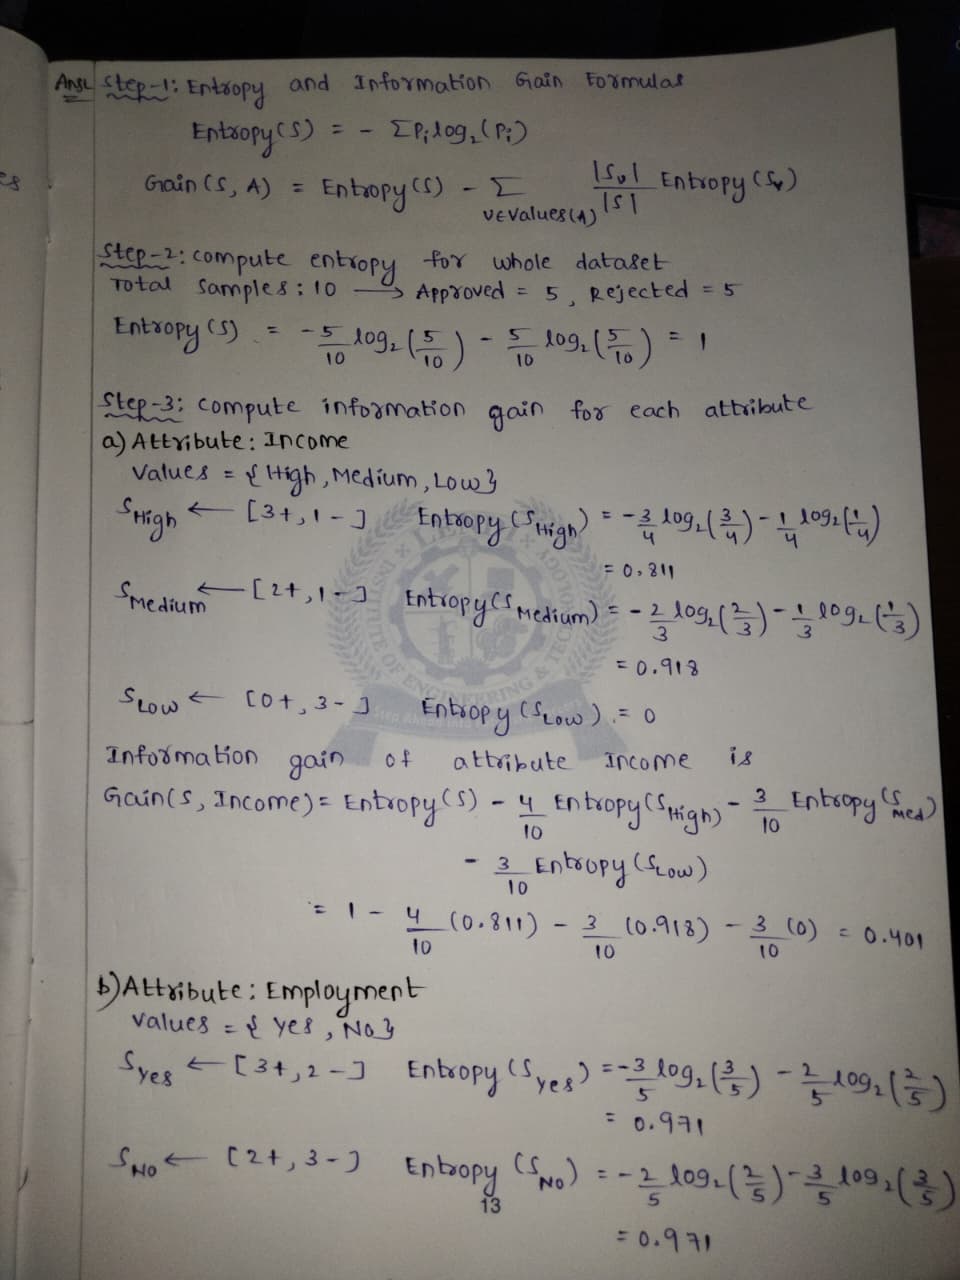 Ans1 Step-1: Entropy and Information Gain Formulas
Entropy(S) = - Σ Pi log2 (Pi)
Gain (S, A) = Entropy(S) - Σ v∈Values(A) |Sv|/|S| Entropy(Sv)
es
Step-2: compute entropy for whole dataset
Total samples: 10 → Approved = 5, Rejected = 5
Entropy(S) = -5/10 log2 (5/10) - 5/10 log2 (5/10) = 1
Step-3: compute information gain for each attribute
a) Attribute: Income
Values = {High, Medium, Low}
SHigh ← [3+, 1-] Entropy (SHigh) = -3/4 log2 (3/4) - 1/4 log2 (1/4)
= 0.811
SMedium ← [2+, 1-] Entropy(SMedium) = -2/3 log2 (2/3) - 1/3 log2 (1/3)
= 0.918
SLow ← [0+, 3-] Entropy (SLow) = 0
Information gain of attribute Income is
Gain(S, Income) = Entropy(S) - 4/10 Entropy(SHigh) - 3/10 Entropy(Smed)
- 3/10 Entropy (SLow)
= 1 - 4/10 (0.811) - 3/10 (0.918) - 3/10 (0) = 0.401
b) Attribute: Employment
Values = {Yes, No}
Syes ← [3+, 2-] Entropy (Syes) = -3/5 log2 (3/5) - 2/5 log2 (2/5)
= 0.971
SNo ← [2+, 3-] Entropy (SNo) = -2/5 log2 (2/5) - 3/5 log2 (3/5)
13
= 0.971
OF ENGINEERING & TECHNOLOGY